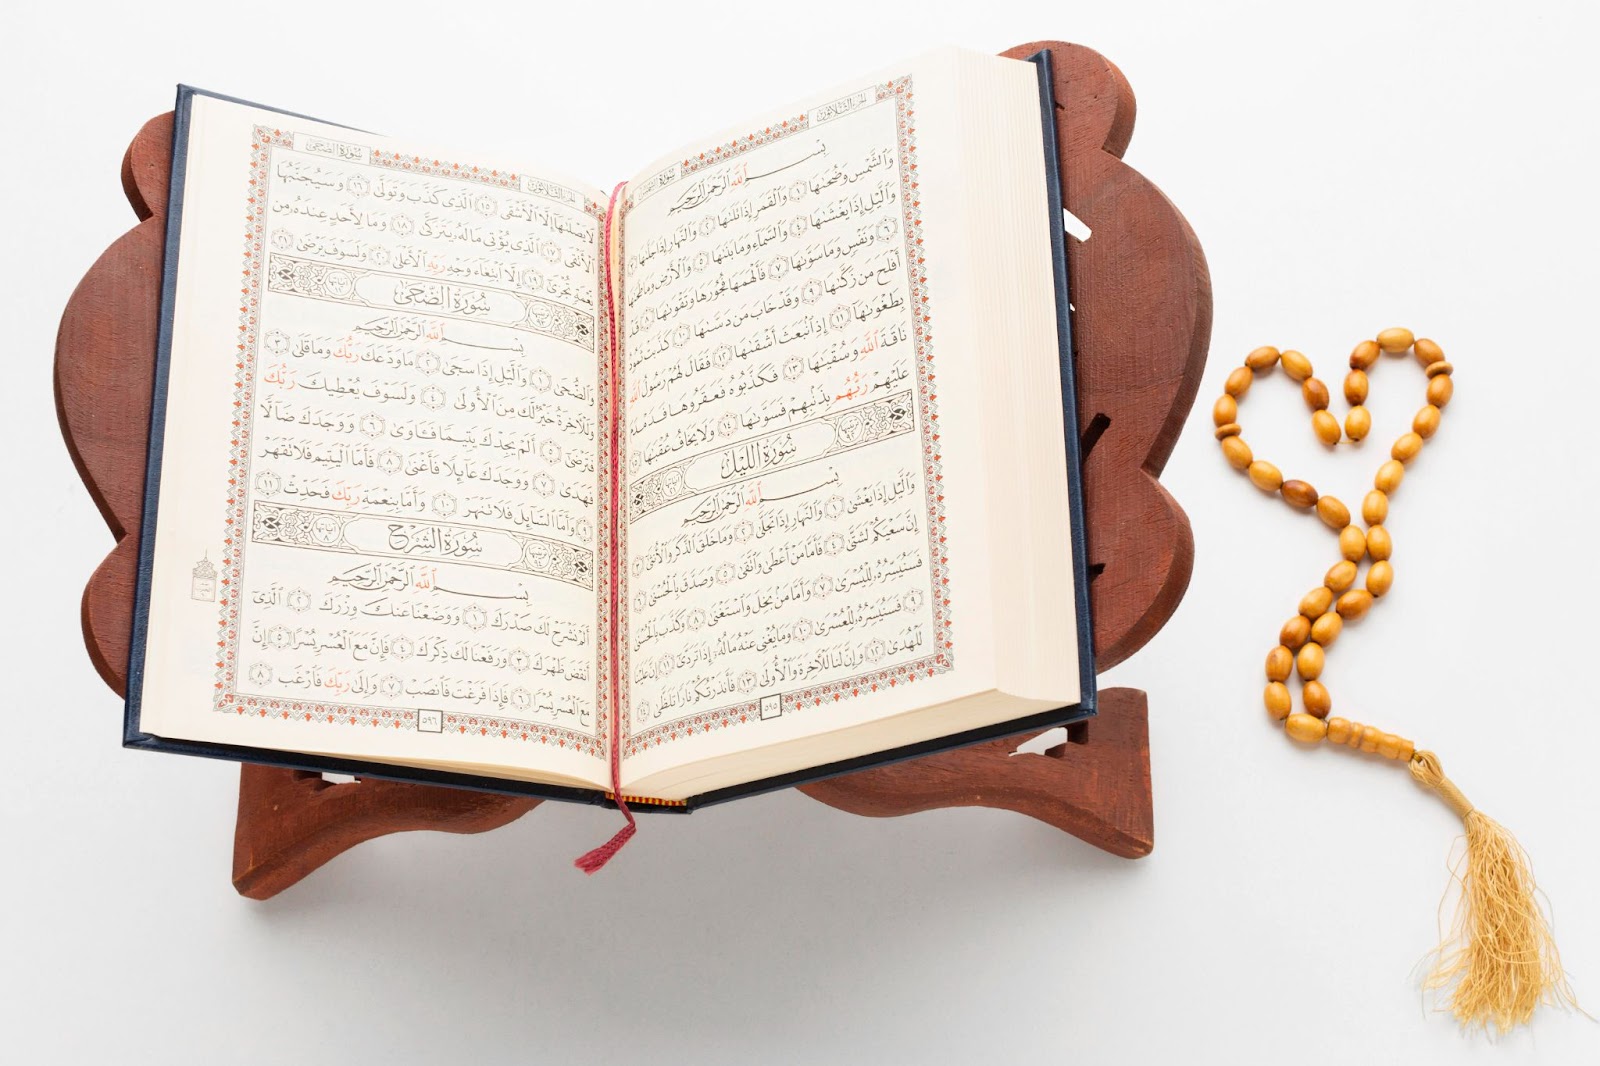 الجزء الثلاثون
بِسْمِ ٱللَّهِ ٱلرَّحْمَٰنِ ٱلرَّحِيمِ
وَٱلشَّمْسِ وَضُحَىٰهَا ١ وَٱلْقَمَرِ إِذَا تَلَىٰهَا ٢ وَٱلنَّهَارِ إِذَا جَلَّىٰهَا ٣
وَٱلَّيْلِ إِذَا يَغْشَىٰهَا ٤ وَٱلسَّمَآءِ وَمَا بَنَىٰهَا ٥ وَٱلْأَرْضِ وَمَا طَحَىٰهَا
٦ وَنَفْسٍ وَمَا سَوَّىٰهَا ٧ فَأَلْهَمَهَا فُجُورَهَا وَتَقْوَىٰهَا ٨ قَدْ
أَفْلَحَ مَن زَكَّىٰهَا ٩ وَقَدْ خَابَ مَن دَسَّىٰهَا ١٠ كَذَّبَتْ ثَمُودُ
بِطَغْوَىٰهَآ ١١ إِذِ ٱنۢبَعَثَ أَشْقَىٰهَا ١٢ فَقَالَ لَهُمْ رَسُولُ ٱللَّهِ
نَاقَةَ ٱللَّهِ وَسُقْيَٰهَا ١٣ فَكَذَّبُوهُ فَعَقَرُوهَا فَدَمْدَمَ
عَلَيْهِمْ رَبُّهُم بِذَنۢبِهِمْ فَسَوَّىٰهَا ١٤ وَلَا يَخَافُ عُقْبَٰهَا ١٥
سُورَةُ اللَّيْلِ
بِسْمِ ٱللَّهِ ٱلرَّحْمَٰنِ ٱلرَّحِيمِ
وَٱلَّيْلِ إِذَا يَغْشَىٰ ١ وَٱلنَّهَارِ إِذَا تَجَلَّىٰ ٢ وَمَا خَلَقَ ٱلذَّكَرَ وَٱلْأُنثَىٰٓ ٣
إِنَّ سَعْيَكُمْ لَشَتَّىٰ ٤ فَأَمَّا مَنْ أَعْطَىٰ وَٱتَّقَىٰ ٥ وَصَدَّقَ بِٱلْحُسْنَىٰ ٦
فَسَنُيَسِّرُهُۥ لِلْيُسْرَىٰ ٧ وَأَمَّا مَنۢ بَخِلَ وَٱسْتَغْنَىٰ ٨ وَكَذَّبَ بِٱلْحُسْنَىٰ
٩ فَسَنُيَسِّرُهُۥ لِلْعُسْرَىٰ ١٠ وَمَا يُغْنِي عَنْهُ مَالُهُۥٓ إِذَا تَرَدَّىٰٓ ١١ إِنَّ عَلَيْنَا
لَلْهُدَىٰ ١٢ وَإِنَّ لَنَا لَلْءَاخِرَةَ وَٱلْأُولَىٰ ١٣ فَأَنذَرْتُكُمْ نَارًا تَلَظَّىٰ ١٤
٥٩٥
الجزء الثلاثون
سُورَةُ الضُّحَىٰ
لَا يَصْلَىٰهَآ إِلَّا ٱلْأَشْقَى ١٥ ٱلَّذِي كَذَّبَ وَتَوَلَّىٰ ١٦ وَسَيُجَنَّبُهَا
ٱلْأَتْقَى ١٧ ٱلَّذِي يُؤْتِي مَالَهُۥ يَتَزَكَّىٰ ١٨ وَمَا لِأَحَدٍ عِندَهُۥ مِن
نِّعْمَةٍ تُجْزَىٰٓ ١٩ إِلَّا ٱبْتِغَآءَ وَجْهِ رَبِّهِ ٱلْأَعْلَىٰ ٢٠ وَلَسَوْفَ يَرْضَىٰ ٢١
سُورَةُ الضُّحَىٰ
بِسْمِ ٱللَّهِ ٱلرَّحْمَٰنِ ٱلرَّحِيمِ
وَٱلضُّحَىٰ ١ وَٱلَّيْلِ إِذَا سَجَىٰ ٢ مَا وَدَّعَكَ رَبُّكَ وَمَا قَلَىٰ ٣
وَلَلْءَاخِرَةُ خَيْرٌ لَّكَ مِنَ ٱلْأُولَىٰ ٤ وَلَسَوْفَ يُعْطِيكَ رَبُّكَ
فَتَرْضَىٰٓ ٥ أَلَمْ يَجِدْكَ يَتِيمًا فَـَٔاوَىٰ ٦ وَوَجَدَكَ ضَآلًّا
فَهَدَىٰ ٧ وَوَجَدَكَ عَآئِلًا فَأَغْنَىٰ ٨ فَأَمَّا ٱلْيَتِيمَ فَلَا تَقْهَرْ
٩ وَأَمَّا ٱلسَّآئِلَ فَلَا تَنْهَرْ ١٠ وَأَمَّا بِنِعْمَةِ رَبِّكَ فَحَدِّثْ ١١
سُورَةُ الشَّرْحِ
بِسْمِ ٱللَّهِ ٱلرَّحْمَٰنِ ٱلرَّحِيمِ
أَلَمْ نَشْرَحْ لَكَ صَدْرَكَ ١ وَوَضَعْنَا عَنكَ وِزْرَكَ ٢ ٱلَّذِيٓ
أَنقَضَ ظَهْرَكَ ٣ وَرَفَعْنَا لَكَ ذِكْرَكَ ٤ فَإِنَّ مَعَ ٱلْعُسْرِ يُسْرًا ٥ إِنَّ
مَعَ ٱلْعُسْرِ يُسْرًا ٦ فَإِذَا فَرَغْتَ فَٱنصَبْ ٧ وَإِلَىٰ رَبِّكَ فَٱرْغَب ٨
٥٩٦